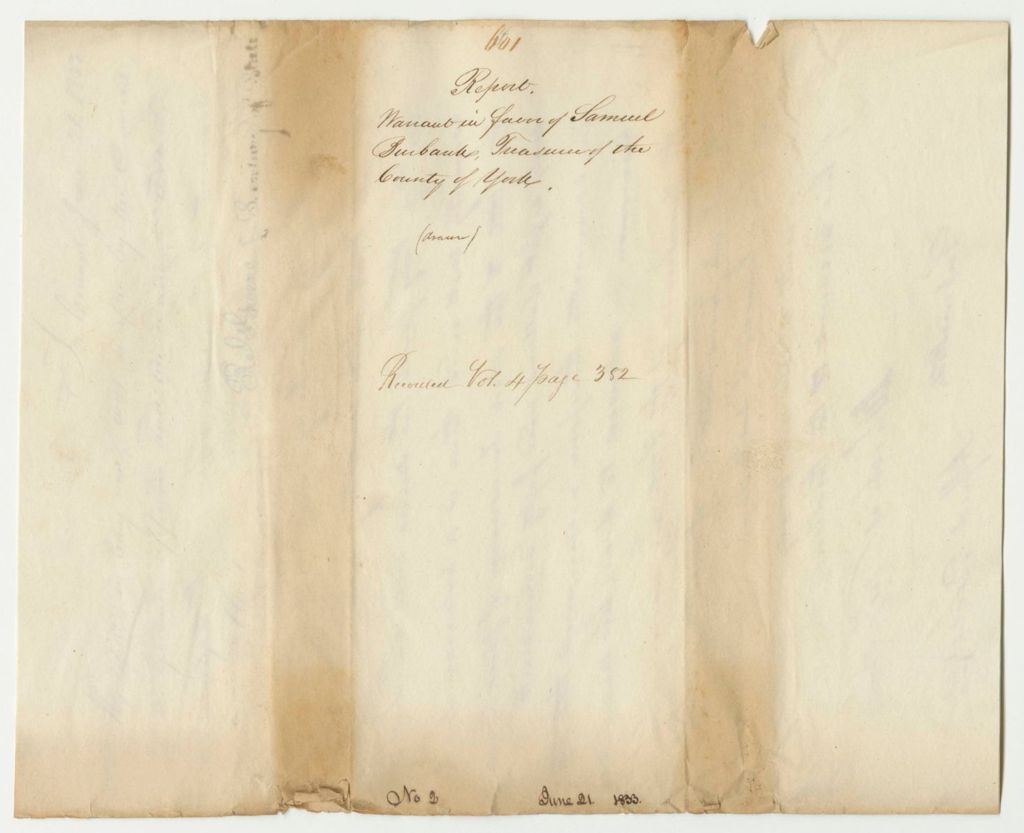 601
Report.
Warrant in favor of Samuel
Burbank, Treasurer of the
County of York.
(drawn)
Recorded Vol. 4 page 352
No 2 June 21. 1833.